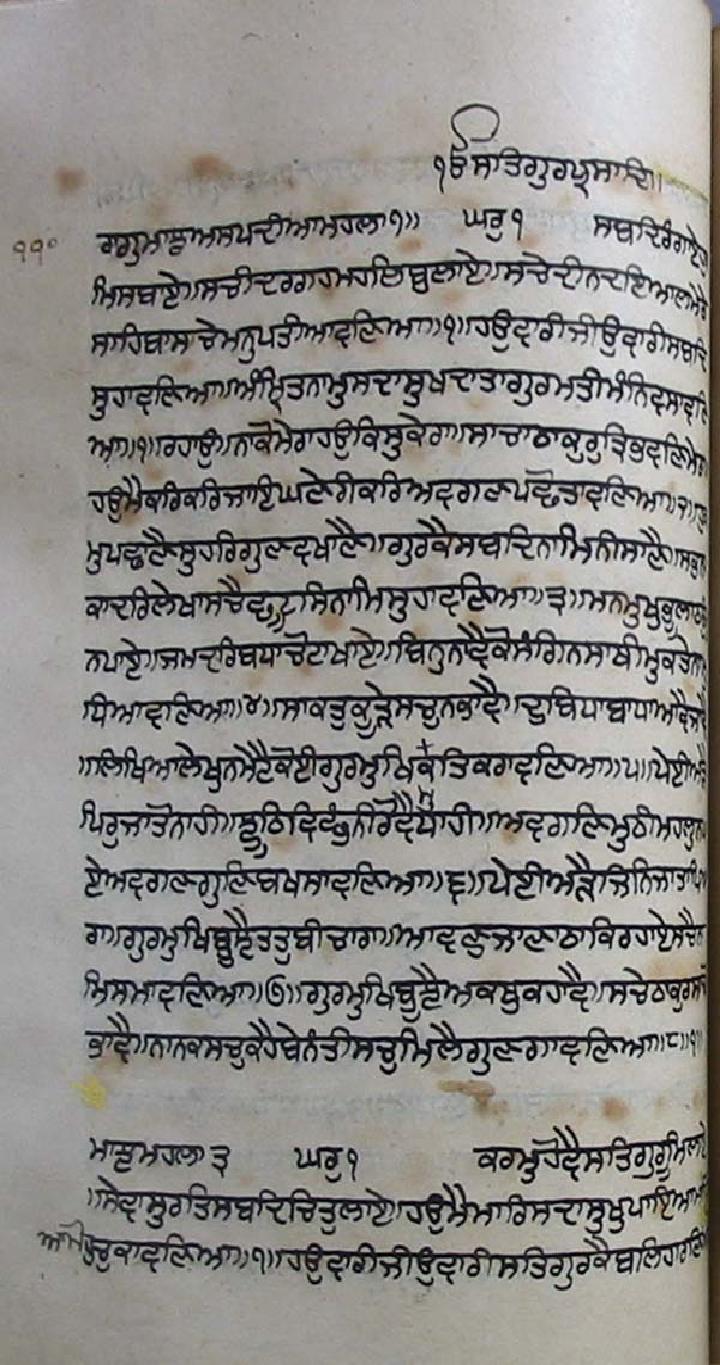 ੴ ਸਤਿਗੁਰਪ੍ਰਸਾਦਿ॥
੧੧੦
ਰਾਗੁਮਾਝਅਸਟਪਦੀਆਮਹਲਾ੧॥ ਘਰੁ ੧ ਸਬਦਿਰੰਗਾਏ
ਮਿਸਬਾਏ॥ਸਚੀਦਰਗਾਹਮਹਲਿਬੁਲਾਏ॥ਸਚੇਦੀਨਦਇਆਲਮੇਰੇ
ਸਾਹਿਬਾਸਚੇਮਨੁਪਤੀਆਵਣਿਆ॥੧॥ਹਉਵਾਰੀਜੀਉਵਾਰੀਸਬਦਿ
ਸੁਹਾਵਣਿਆ॥ਅੰਮ੍ਰਿਤਨਾਮੁਸਦਾਸੁਖਦਾਤਾਗੁਰਮਤੀਮੰਨਿਵਸਾਵਣਿ
ਆ॥੧॥ਰਹਾਉ॥ਨਾਕੋਮੇਰਾਹਉਕਿਸੁਕੇਰਾ॥ਸਾਚਾਠਾਕੁਰੁਤ੍ਰਿਭਵਣਿਮੇਰਾ
ਹਉਮੈਕਰਿਕਰਿਜਾਇਘਣੇਰੀਕਰਿਅਵਗਣਪਛੋਤਾਵਣਿਆ॥੨॥
ਮੁਪਛਾਣੈਸੁਹਰਿਗੁਣਵਖਾਣੈ॥ਗੁਰਕੈਸਬਦਿਨਾਮਿਨੀਸਾਣੈ॥
ਕਾਦਰਿਲੇਖਾਸਚੈਛੂਟਸਿਨਾਮਿਸੁਹਾਵਣਿਆ॥੩॥ਮਨਮੁਖੁਭੂਲਾਠਉਰੁ
ਨਪਾਏ॥ਜਮਦਰਿਬਧਾਚੋਟਾਖਾਏ॥ਬਿਨੁਨਾਵੈਕੋਸੰਗਿਨਸਾਥੀਮੁਕਤੇਨਾਮੁ
ਧਿਆਵਣਿਆ॥੪॥ਸਾਕਤੁਕੂੜੇਸਚੁਨਭਾਵੈ॥ਦੁਬਿਧਾਬਾਧਾਆਵੈਜਾਵੈ
॥ਲਿਖਿਆਲੇਖੁਨਮੇਟੈਕੋਈਗੁਰਮੁਖਿਮੁਕਤਿਕਰਾਵਣਿਆ॥੫॥ਪੇਈਅੜੈ
ਪਿਰੁਜਾਤੋਨਾਹੀ॥ਝੂਠਿਵਿਛੁੰਨੀਰੋਵੈਧਾਹੀ॥ਅਵਗਣਿਮੁਠੀਮਹਲੁਨਪਾ
ਏਅਵਗਣਗੁਣਿਬਖਸਾਵਣਿਆ॥੬॥ਪੇਈਅੜੈਜਿਨਿਜਾਤਾਪਿਆ
ਰਾ॥ਗੁਰਮੁਖਿਬੂਝੈਤਤੁਬੀਚਾਰਾ॥ਆਵਣੁਜਾਣਾਠਾਕਿਰਹਾਏਸਚੈਨਾ
ਮਿਸਮਾਵਣਿਆ॥੭॥ਗੁਰਮੁਖਿਬੂਝੈਅਕਥੁਕਹਾਵੈ॥ਸਚੇਠਾਕੁਰਸਾਚੋ
ਭਾਵੈ॥ਨਾਨਕਸਚੁਕਹੈਬੇਨੰਤੀਸਚੁਮਿਲੈਗੁਣਗਾਵਣਿਆ॥੮॥੧॥
ਮਾਝਮਹਲਾ੩ ਘਰੁ ੧ ਕਰਮੁਹੋਵੈਸਤਿਗੁਰੂਮਿਲਾਏ
॥ਸੇਵਾਸੁਰਤਿਸਬਦਿਚਿਤੁਲਾਏ॥ਹਉਮੈਮਾਰਿਸਦਾਸੁਖੁਪਾਇਆਮਾਇ
ਆਮੋਹੁਚੁਕਾਵਣਿਆ॥੧॥ਹਉਵਾਰੀਜੀਉਵਾਰੀਸਤਿਗੁਰਕੈਬਲਿਹਾਰਣਿ